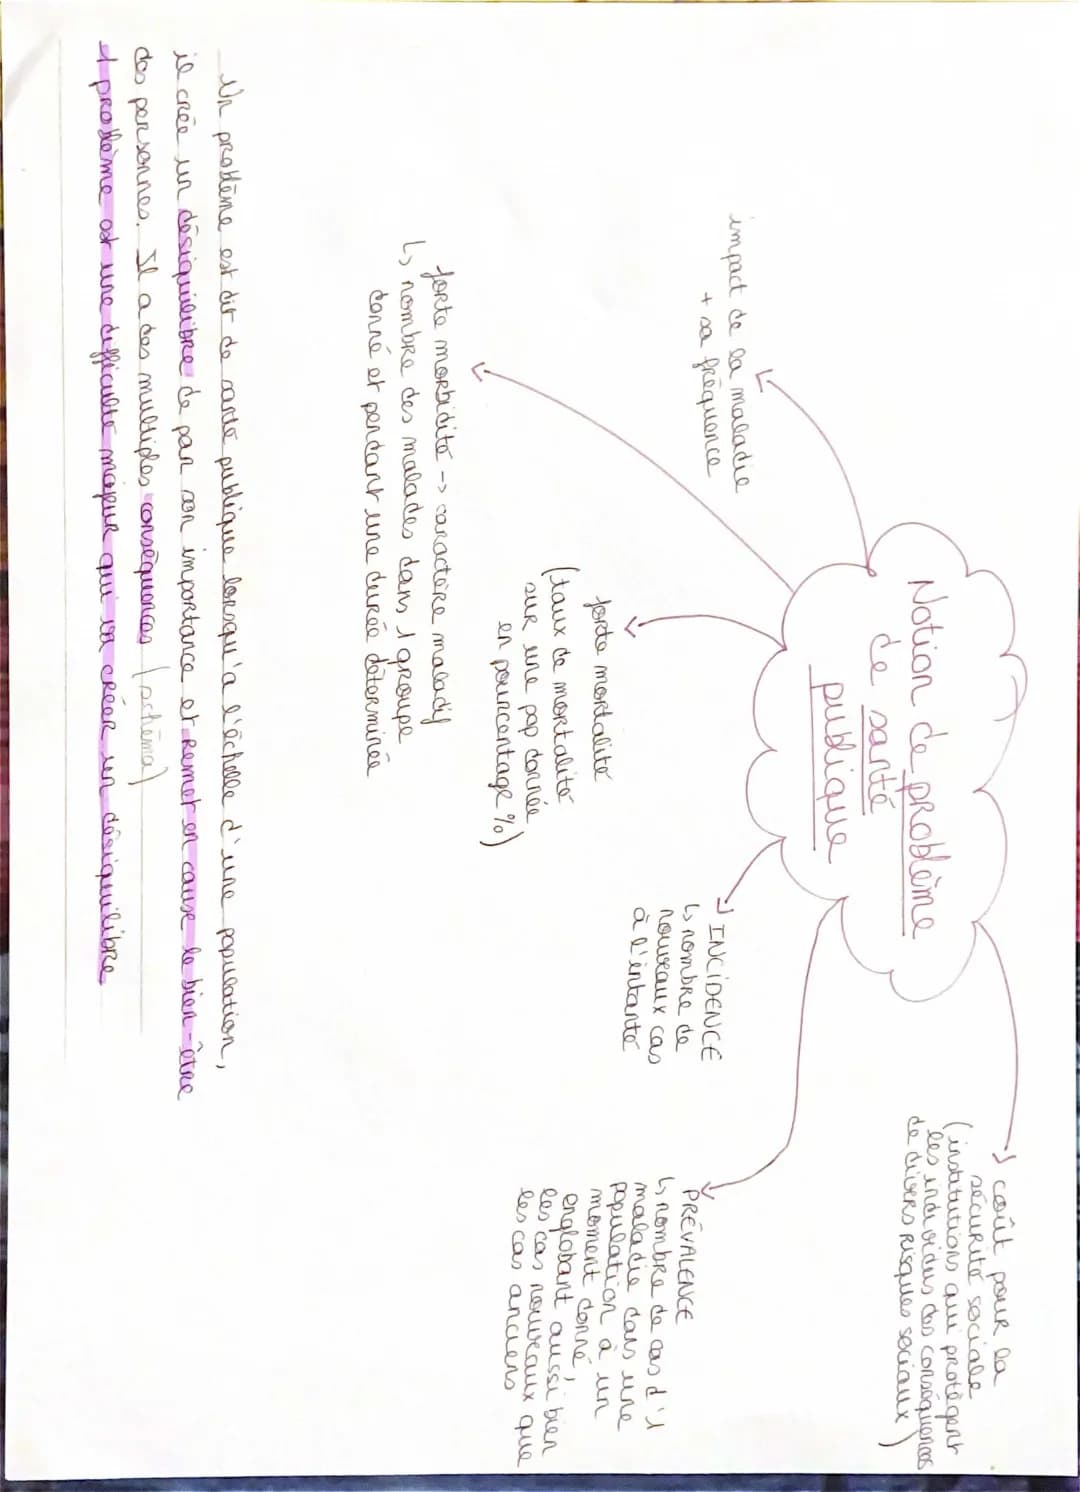 Notion de problème
de santé
publique
impact de la maladie
+ sa fréquence
forte morbidité -> caractère maladif
↳ nombre des malades dans 1 groupe
donné et pendant une durée déterminée
forte mortalité
(taux de mortalité
sur une pop donnée
en pourcentage %)
INCIDENCE
↳ nombre de
nouveaux cas
à l'intanté
PRÉVALENCE
↳ nombre de cas d'1
maladie dans une
population à un
moment donné,
englobant aussi bien
les cas nouveaux que
les cas anciens
coût pour la
sécurité sociale
(institutions qui protègent
les individus des conséquences
de divers risques sociaux)
Un problème est dit de santé publique lorsqu'à l'échelle d'une population,
il crée un désiquilibre de par son importance et remet en cause le bien-être
des personnes. Il a des multiples conséquences (schéma)
1 problème est une difficulté majeur qui va créer un désiquilibre